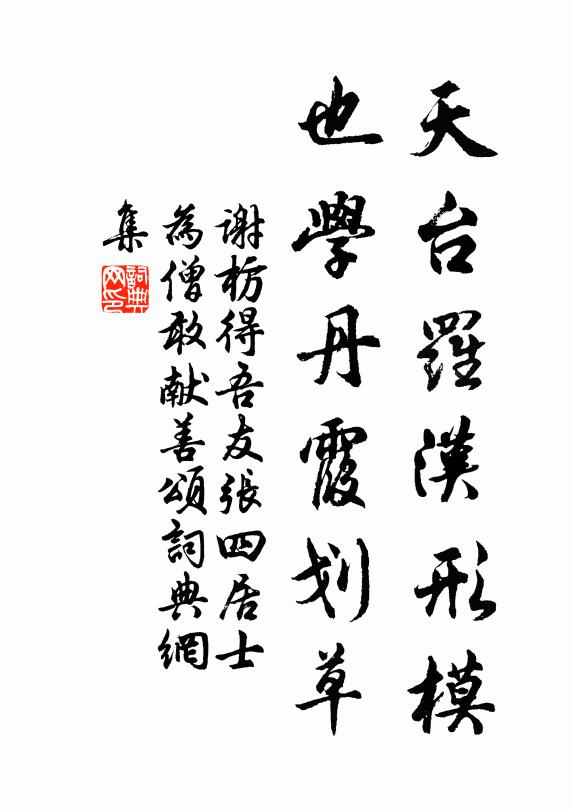 天台羅漢形模
也學丹霞划草
謝枋得吾友張四居士
為僧敢献善頌詞典網
集
詞典
网印